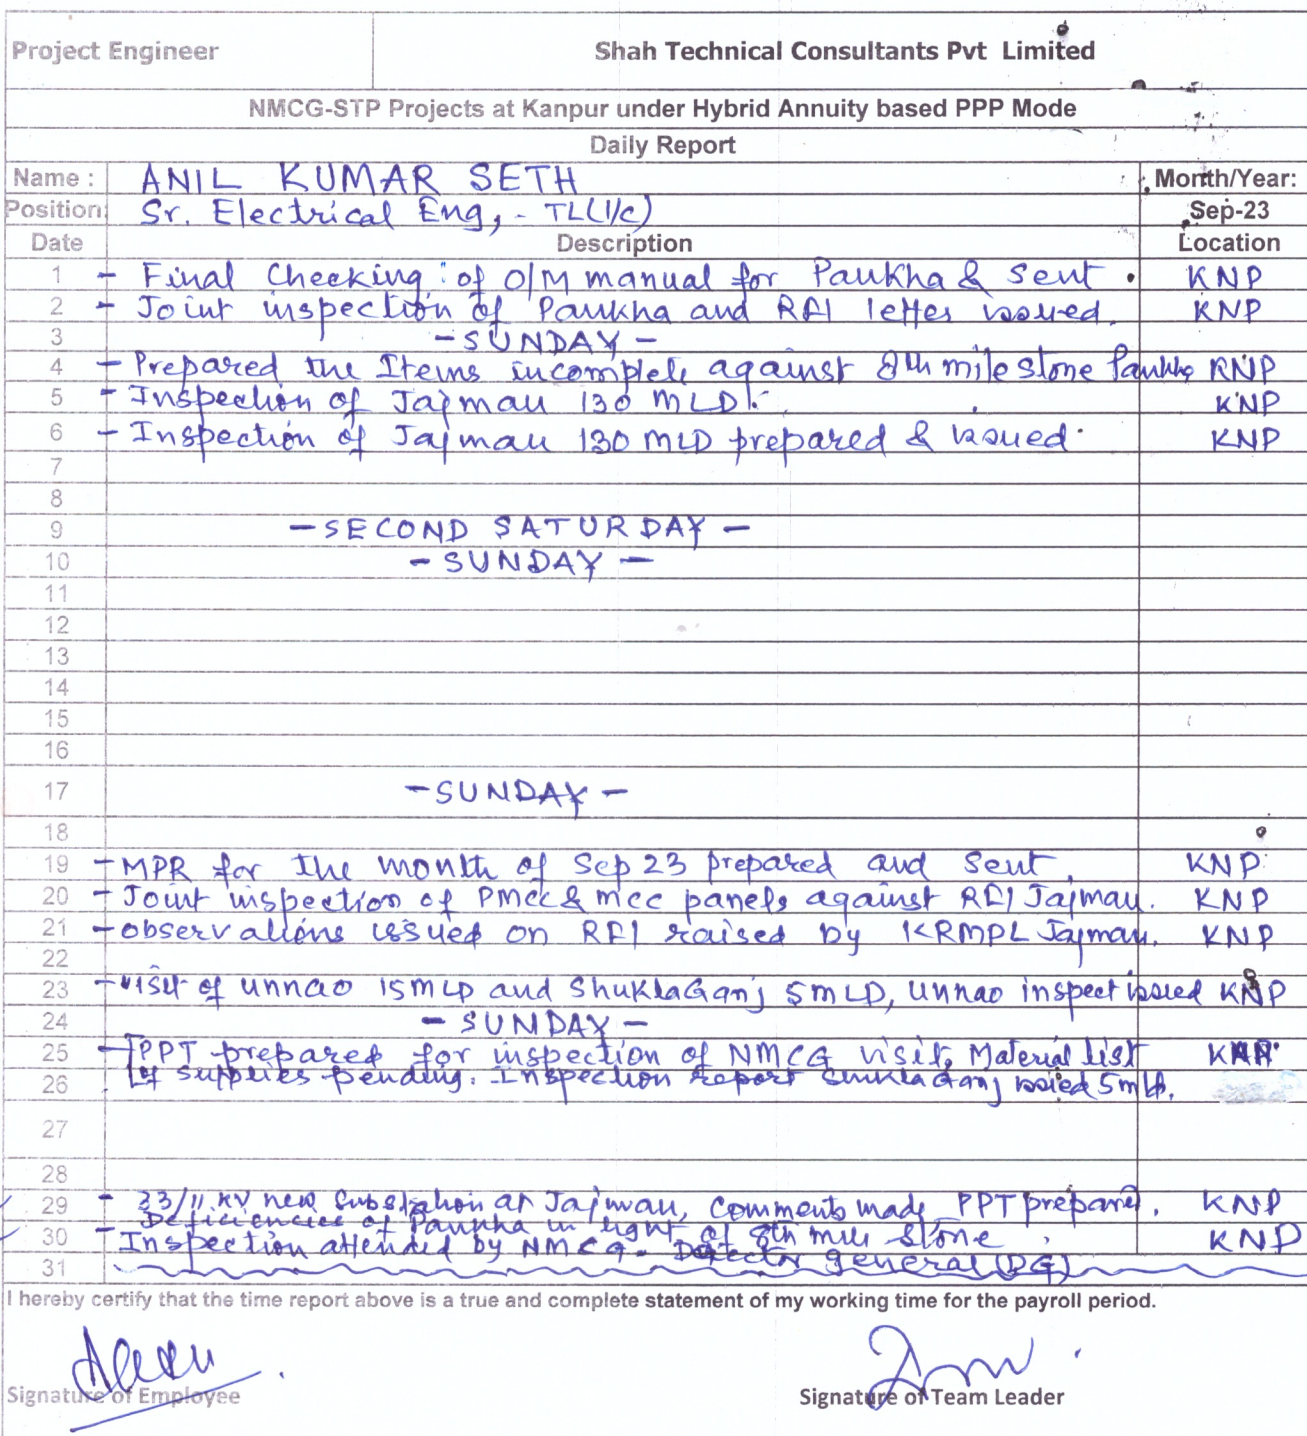 Project Engineer Shah Technical Consultants Pvt Limited
NMCG-STP Projects at Kanpur under Hybrid Annuity based PPP Mode
Daily Report
Name : ANIL KUMAR SETH Month/Year:
Position: Sr. Electrical Eng, - TL(I/c) Sep-23
Date Description Location
1 - Final Checking of O/M manual for Paukha & sent . KNP
2 - Joint inspection of Paukha and RFI letter issued. KNP
3 - SUNDAY -
4 - Prepared the Items incomplete against 8th mile stone Paukha KNP
5 - Inspection of Jajmau 130 MLD. KNP
6 - Inspection of Jajmau 130 MLD prepared & issued. KNP
7
8
9 - SECOND SATURDAY -
10 - SUNDAY -
11
12
13
14
15
16
17 - SUNDAY -
18
19 - MPR for the month of Sep 23 prepared and sent. KNP
20 - Joint inspection of PMCC & MCC panels against RFI Jajmau. KNP
21 - observations issued on RFI raised by KRMPL Jajmau. KNP
22
23 - visit of unnao 15 MLD and ShuklaGanj 5 MLD, Unnao inspect issued KNP
24 - SUNDAY -
25 - PPT prepared for inspection of NMCG visit, Material list
26 of supplies pending. Inspection report ShuklaGanj issued 5 MLD.
27
28
29 - 33/11 KV new Substation at Jajmau, comments made PPT prepared. KNP
Deficiencies of Paukha in light of 8th mile stone
30 - Inspection attended by NMCG - Director General (DG) KNP
31
I hereby certify that the time report above is a true and complete statement of my working time for the payroll period.
Signature of Employee Signature of Team Leader